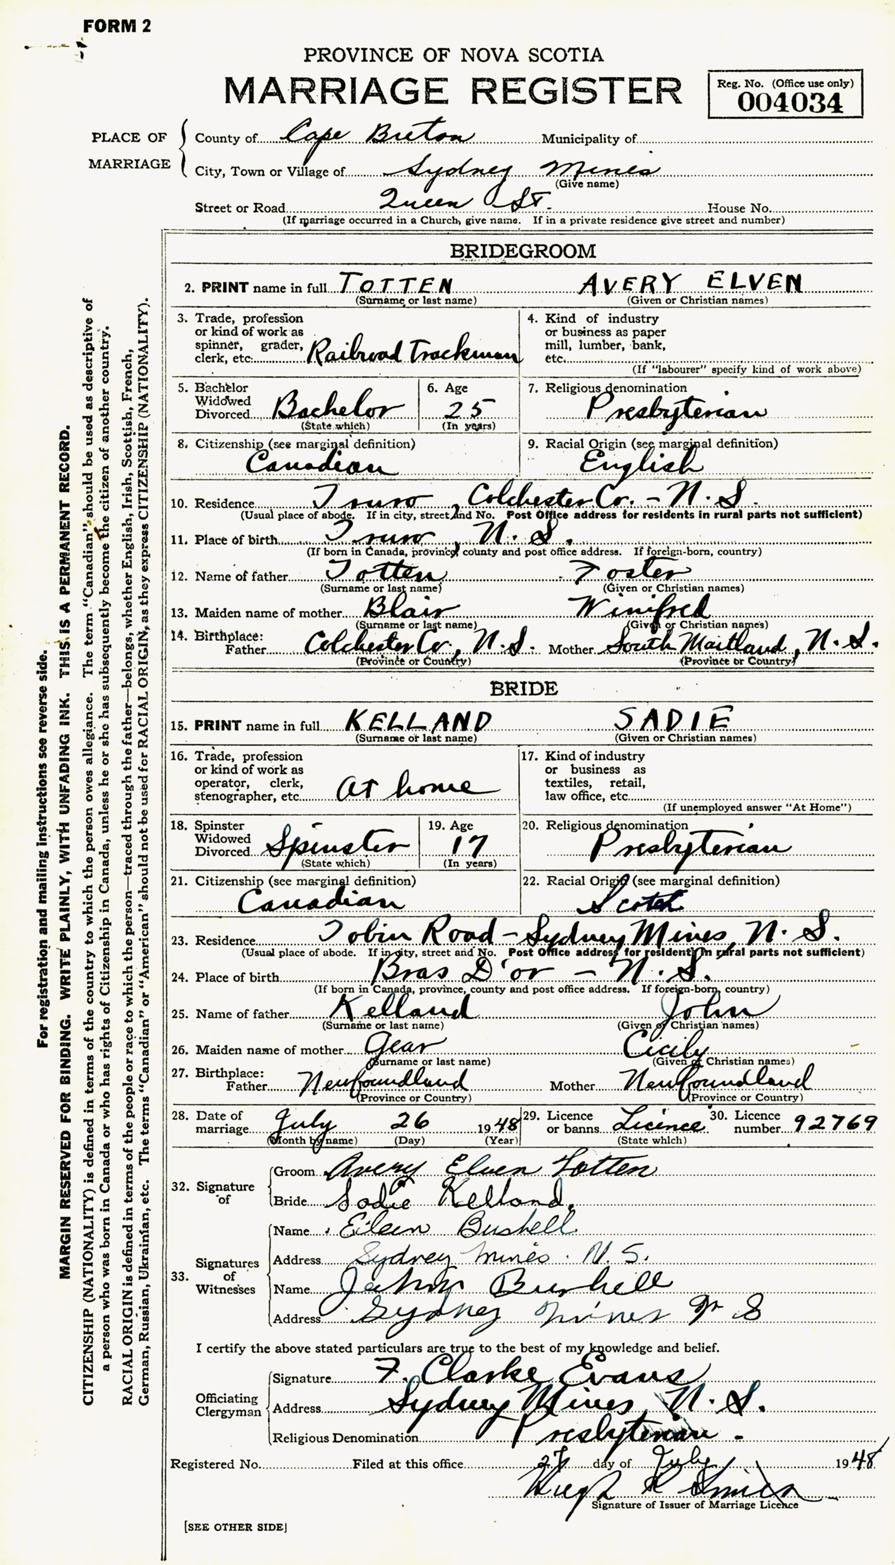 FORM 2
PROVINCE OF NOVA SCOTIA
MARRIAGE REGISTER
Reg. No. (Office use only)
004034
PLACE OF MARRIAGE
County of Cape Breton Municipality of
City, Town or Village of Sydney Mines
(Give name)
Street or Road Queen St. House No.
(If marriage occurred in a Church, give name. If in a private residence give street and number)
BRIDEGROOM
2. PRINT name in full TOTTEN AVERY ELVEN
(Surname or last name) (Given or Christian names)
3. Trade, profession or kind of work as spinner, grader, clerk, etc. Railroad Trackman
4. Kind of industry or business as paper mill, lumber, bank, etc.
(If "labourer" specify kind of work above)
5. Bachelor Widowed Divorced Bachelor
(State which)
6. Age 25
(In years)
7. Religious denomination Presbyterian
8. Citizenship (see marginal definition) Canadian
9. Racial Origin (see marginal definition) English
10. Residence Truro, Colchester Co. - N.S.
(Usual place of abode. If in city, street and No. Post Office address for residents in rural parts not sufficient)
11. Place of birth Truro, N.S.
(If born in Canada, province, county and post office address. If foreign-born, country)
12. Name of father Totten Foster
(Surname or last name) (Given or Christian names)
13. Maiden name of mother Blair Winifred
(Surname or last name) (Given or Christian names)
14. Birthplace: Father Colchester Co., N.S. Mother South Maitland, N.S.
(Province or Country) (Province or Country)
BRIDE
15. PRINT name in full KELLAND SADIE
(Surname or last name) (Given or Christian names)
16. Trade, profession or kind of work as operator, clerk, stenographer, etc. At home
17. Kind of industry or business as textiles, retail, law office, etc.
(If unemployed answer "At Home")
18. Spinster Widowed Divorced Spinster
(State which)
19. Age 17
(In years)
20. Religious denomination Presbyterian
21. Citizenship (see marginal definition) Canadian
22. Racial Origin (see marginal definition)
23. Residence Tobin Road - Sydney Mines, N.S.
(Usual place of abode. If in city, street and No. Post Office address for residents in rural parts not sufficient)
24. Place of birth Bras D'or - N.S.
(If born in Canada, province, county and post office address. If foreign-born, country)
25. Name of father Kelland John
(Surname or last name) (Given or Christian names)
26. Maiden name of mother Gear Cicily
(Surname or last name) (Given or Christian names)
27. Birthplace: Father Newfoundland Mother Newfoundland
(Province or Country) (Province or Country)
28. Date of marriage July 26 1948
(Month by name) (Day) (Year)
29. Licence or banns Licence
(State which)
30. Licence number 92769
32. Signature of
Groom Avery Elven Totten
Bride Sadie Kelland.
33. Signatures of Witnesses
Name Eileen Bushell
Address Sydney Mines. N.S.
Name Bushell
Address Sydney Mines N S
I certify the above stated particulars are true to the best of my knowledge and belief.
Officiating Clergyman
Signature F. Clarke Evans
Address Sydney Mines, N.S.
Religious Denomination Presbyterian -
Registered No. Filed at this office 27 day of July 1948
Hugh R
Signature of Issuer of Marriage Licence
[SEE OTHER SIDE]
For registration and mailing instructions see reverse side.
MARGIN RESERVED FOR BINDING. WRITE PLAINLY, WITH UNFADING INK. THIS IS A PERMANENT RECORD.
CITIZENSHIP (NATIONALITY) is defined in terms of the country to which the person owes allegiance. The term "Canadian" should be used as descriptive of
a person who was born in Canada or who has rights of Citizenship in Canada, unless he or she has subsequently become the citizen of another country.
RACIAL ORIGIN is defined in terms of the people or race to which the person—traced through the father—belongs, whether English, Irish, Scottish, French,
German, Russian, Ukrainian, etc. The terms "Canadian" or "American" should not be used for RACIAL ORIGIN, as they express CITIZENSHIP (NATIONALITY).